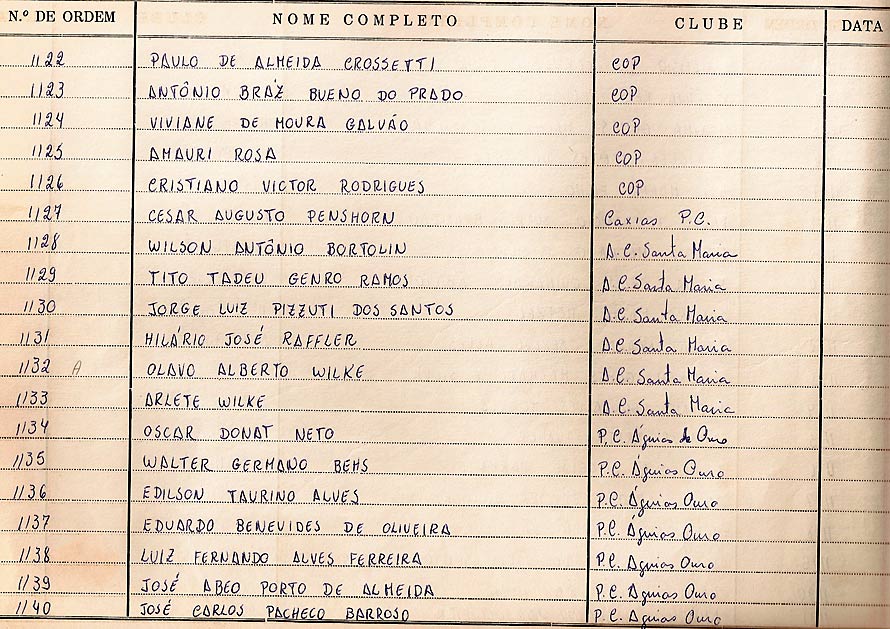 N.º DE ORDEM NOME COMPLETO CLUBE DATA
1122 PAULO DE ALMEIDA CROSSETTI COP
1123 ANTÔNIO BRÁZ BUENO DO PRADO COP
1124 VIVIANE DE MOURA GALVÃO COP
1125 AMAURI ROSA COP
1126 CRISTIANO VICTOR RODRIGUES COP
1127 CESAR AUGUSTO PENSHORN Caxias P.C.
1128 WILSON ANTÔNIO BORTOLIN A.C. Santa Maria
1129 TITO TADEU GENRO RAMOS A.C. Santa Maria
1130 JORGE LUIZ PIZZUTI DOS SANTOS A.C. Santa Maria
1131 HILÁRIO JOSÉ RAFFLER A.C. Santa Maria
1132 A OLAVO ALBERTO WILKE A.C. Santa Maria
1133 ARLETE WILKE A.C. Santa Maria
1134 OSCAR DONAT NETO P.C. Águias de Ouro
1135 WALTER GERMANO BEHS P.C. Águias Ouro
1136 EDILSON TAURINO ALVES P.C. Águias Ouro
1137 EDUARDO BENEVIDES DE OLIVEIRA P.C. Águias Ouro
1138 LUIZ FERNANDO ALVES FERREIRA P.C. Águias Ouro
1139 JOSÉ ABEO PORTO DE ALMEIDA P.C. Águias Ouro
1140 JOSÉ CARLOS PACHECO BARROSO P.C. Águias Ouro